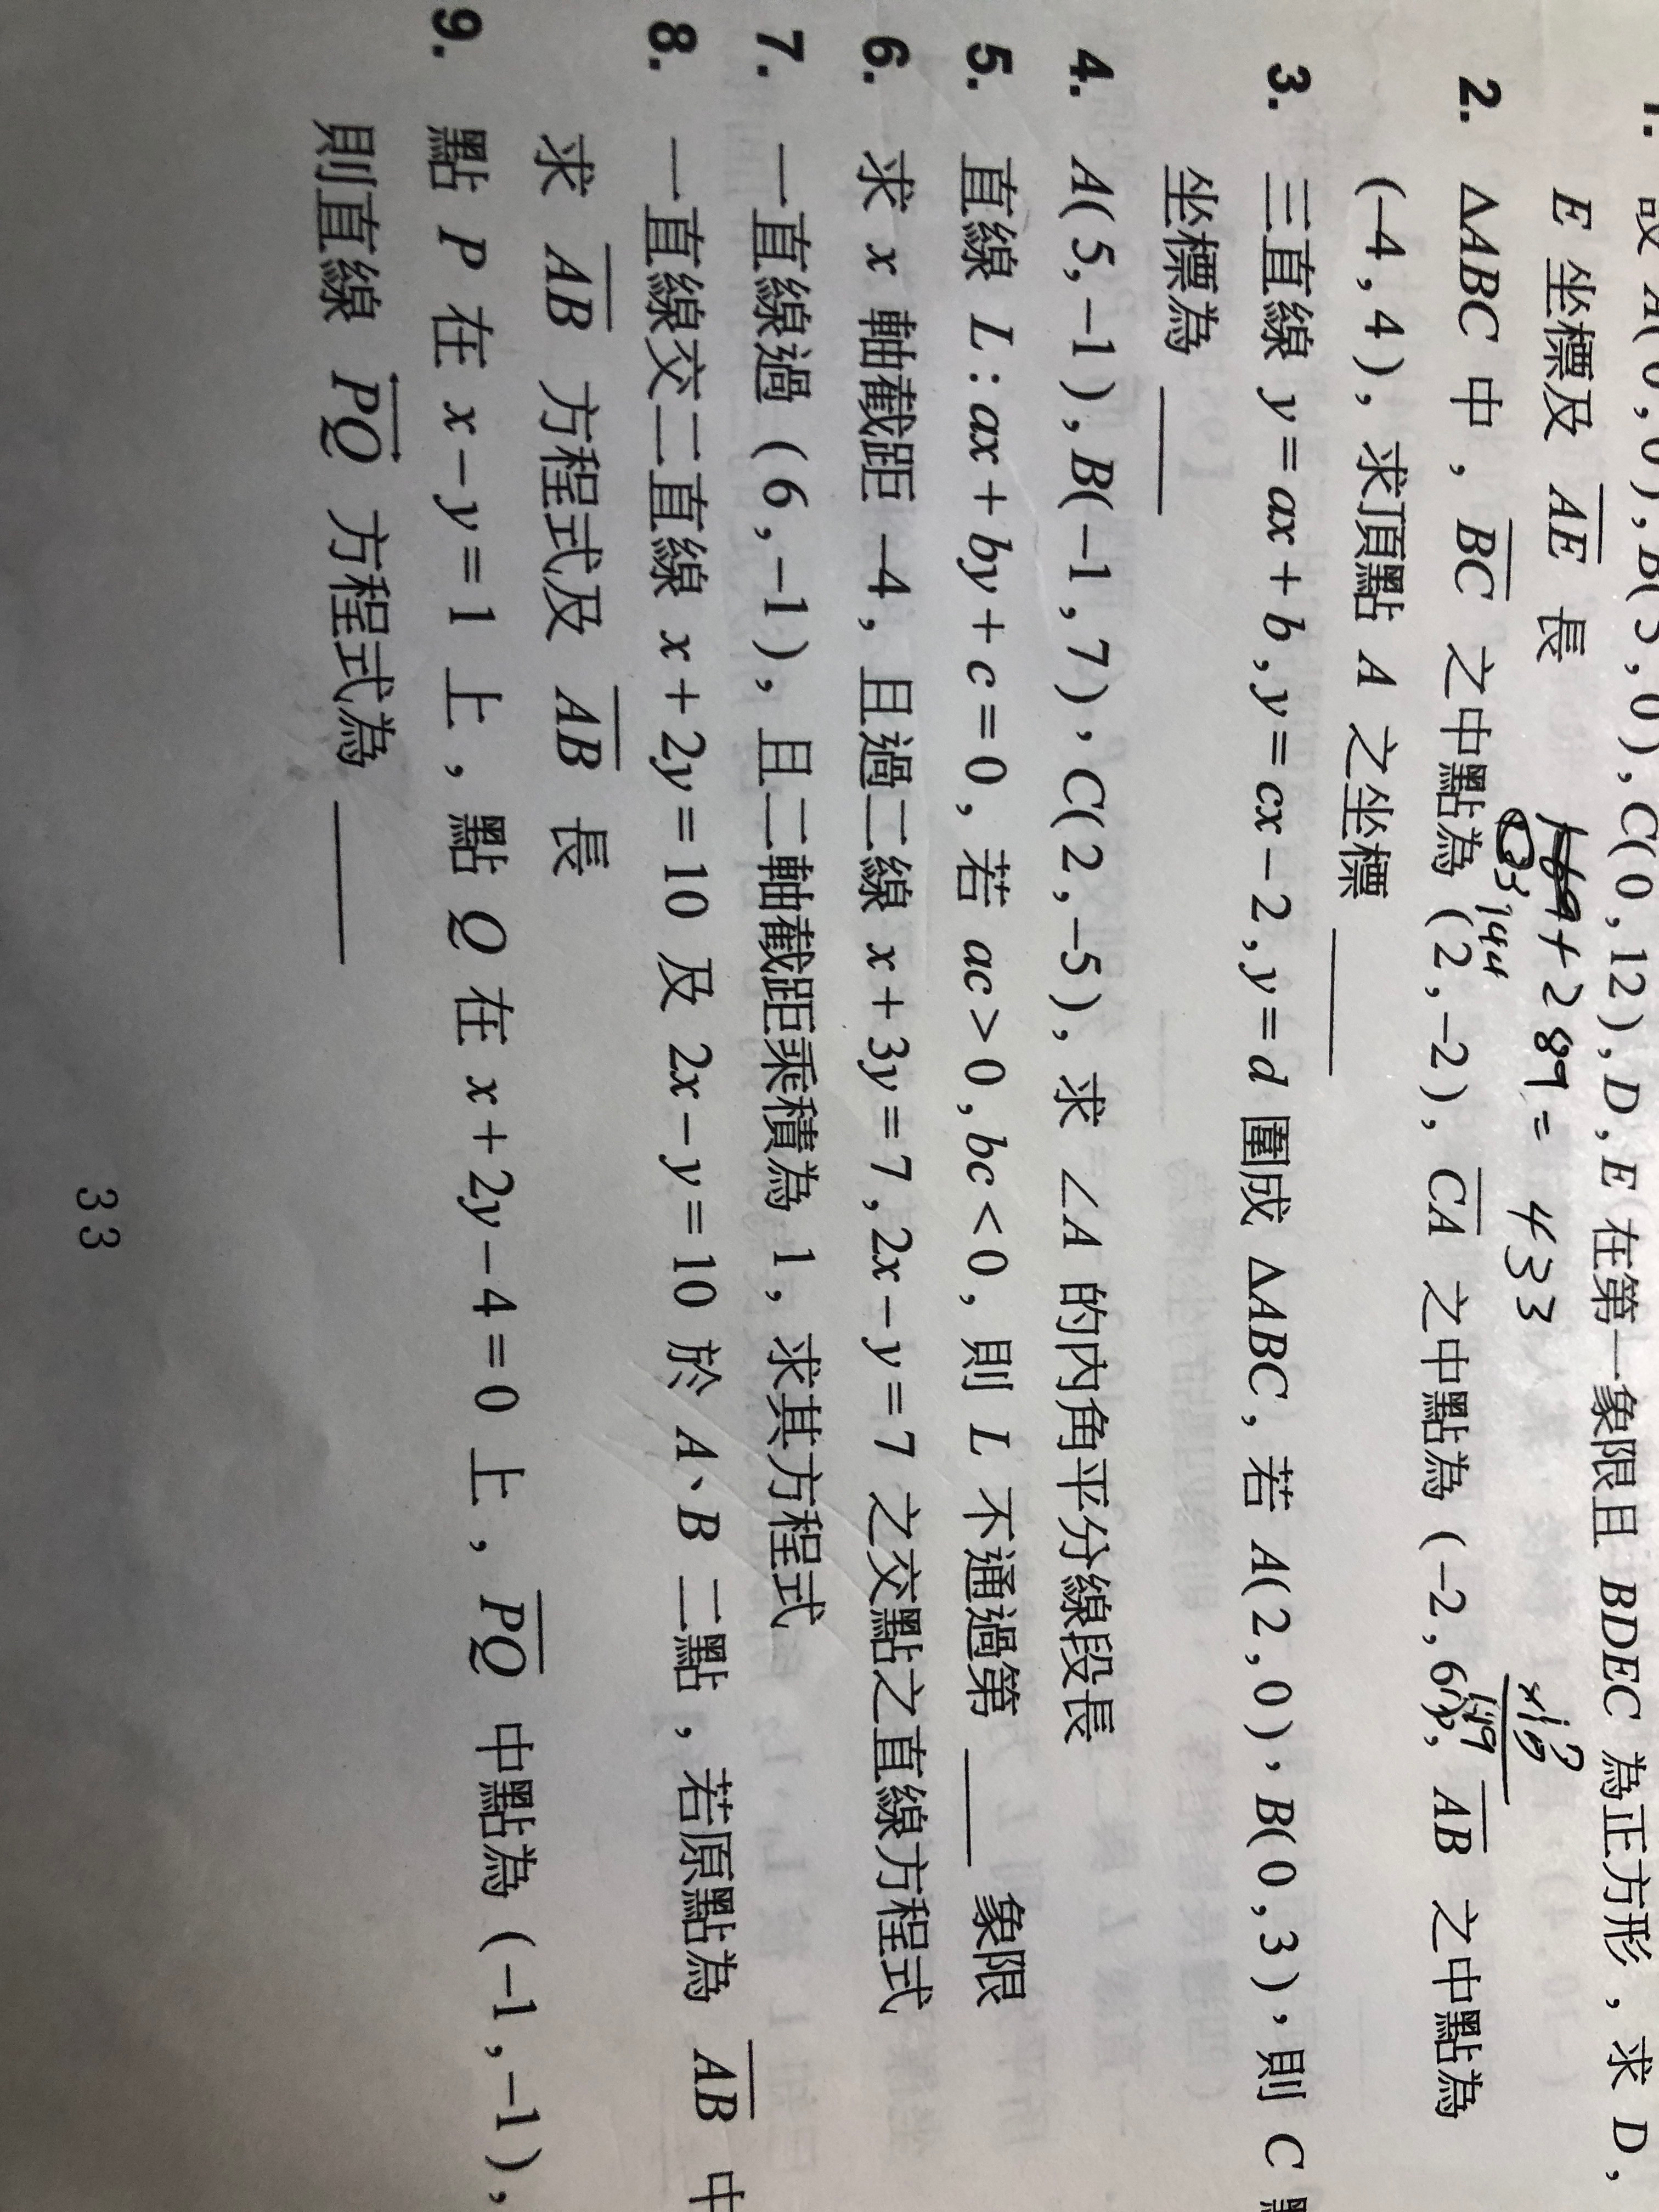 1. 設 A(0,0),B(5,0),C(0,12),D,E 在第一象限且 BDEC 為正方形，求 D,
E 坐標及 AE 長
144+289=433
2. ΔABC 中，BC 之中點為 (2,-2)，CA 之中點為 (-2,6)，AB 之中點為
(-4,4)，求頂點 A 之坐標
3. 三直線 y=ax+b,y=cx-2,y=d 圍成 ΔABC，若 A(2,0)、B(0,3)，則 C
坐標為
4. A(5,-1),B(-1,7)、C(2,-5)，求 ∠A 的內角平分線段長
5. 直線 L:ax+by+c=0，若 ac>0,bc<0，則 L 不通過第 象限
6. 求 x 軸截距 -4，且過二線 x+3y=7,2x-y=7 之交點之直線方程式
7. 一直線過 (6,-1)，且二軸截距乘積為 1，求其方程式
8. 一直線交二直線 x+2y=10 及 2x-y=10 於 A、B 二點，若原點為 AB 中
求 AB 方程式及 AB 長
9. 點 P 在 x-y=1 上，點 Q 在 x+2y-4=0 上，PQ 中點為 (-1,-1)，
則直線 PQ 方程式為
33